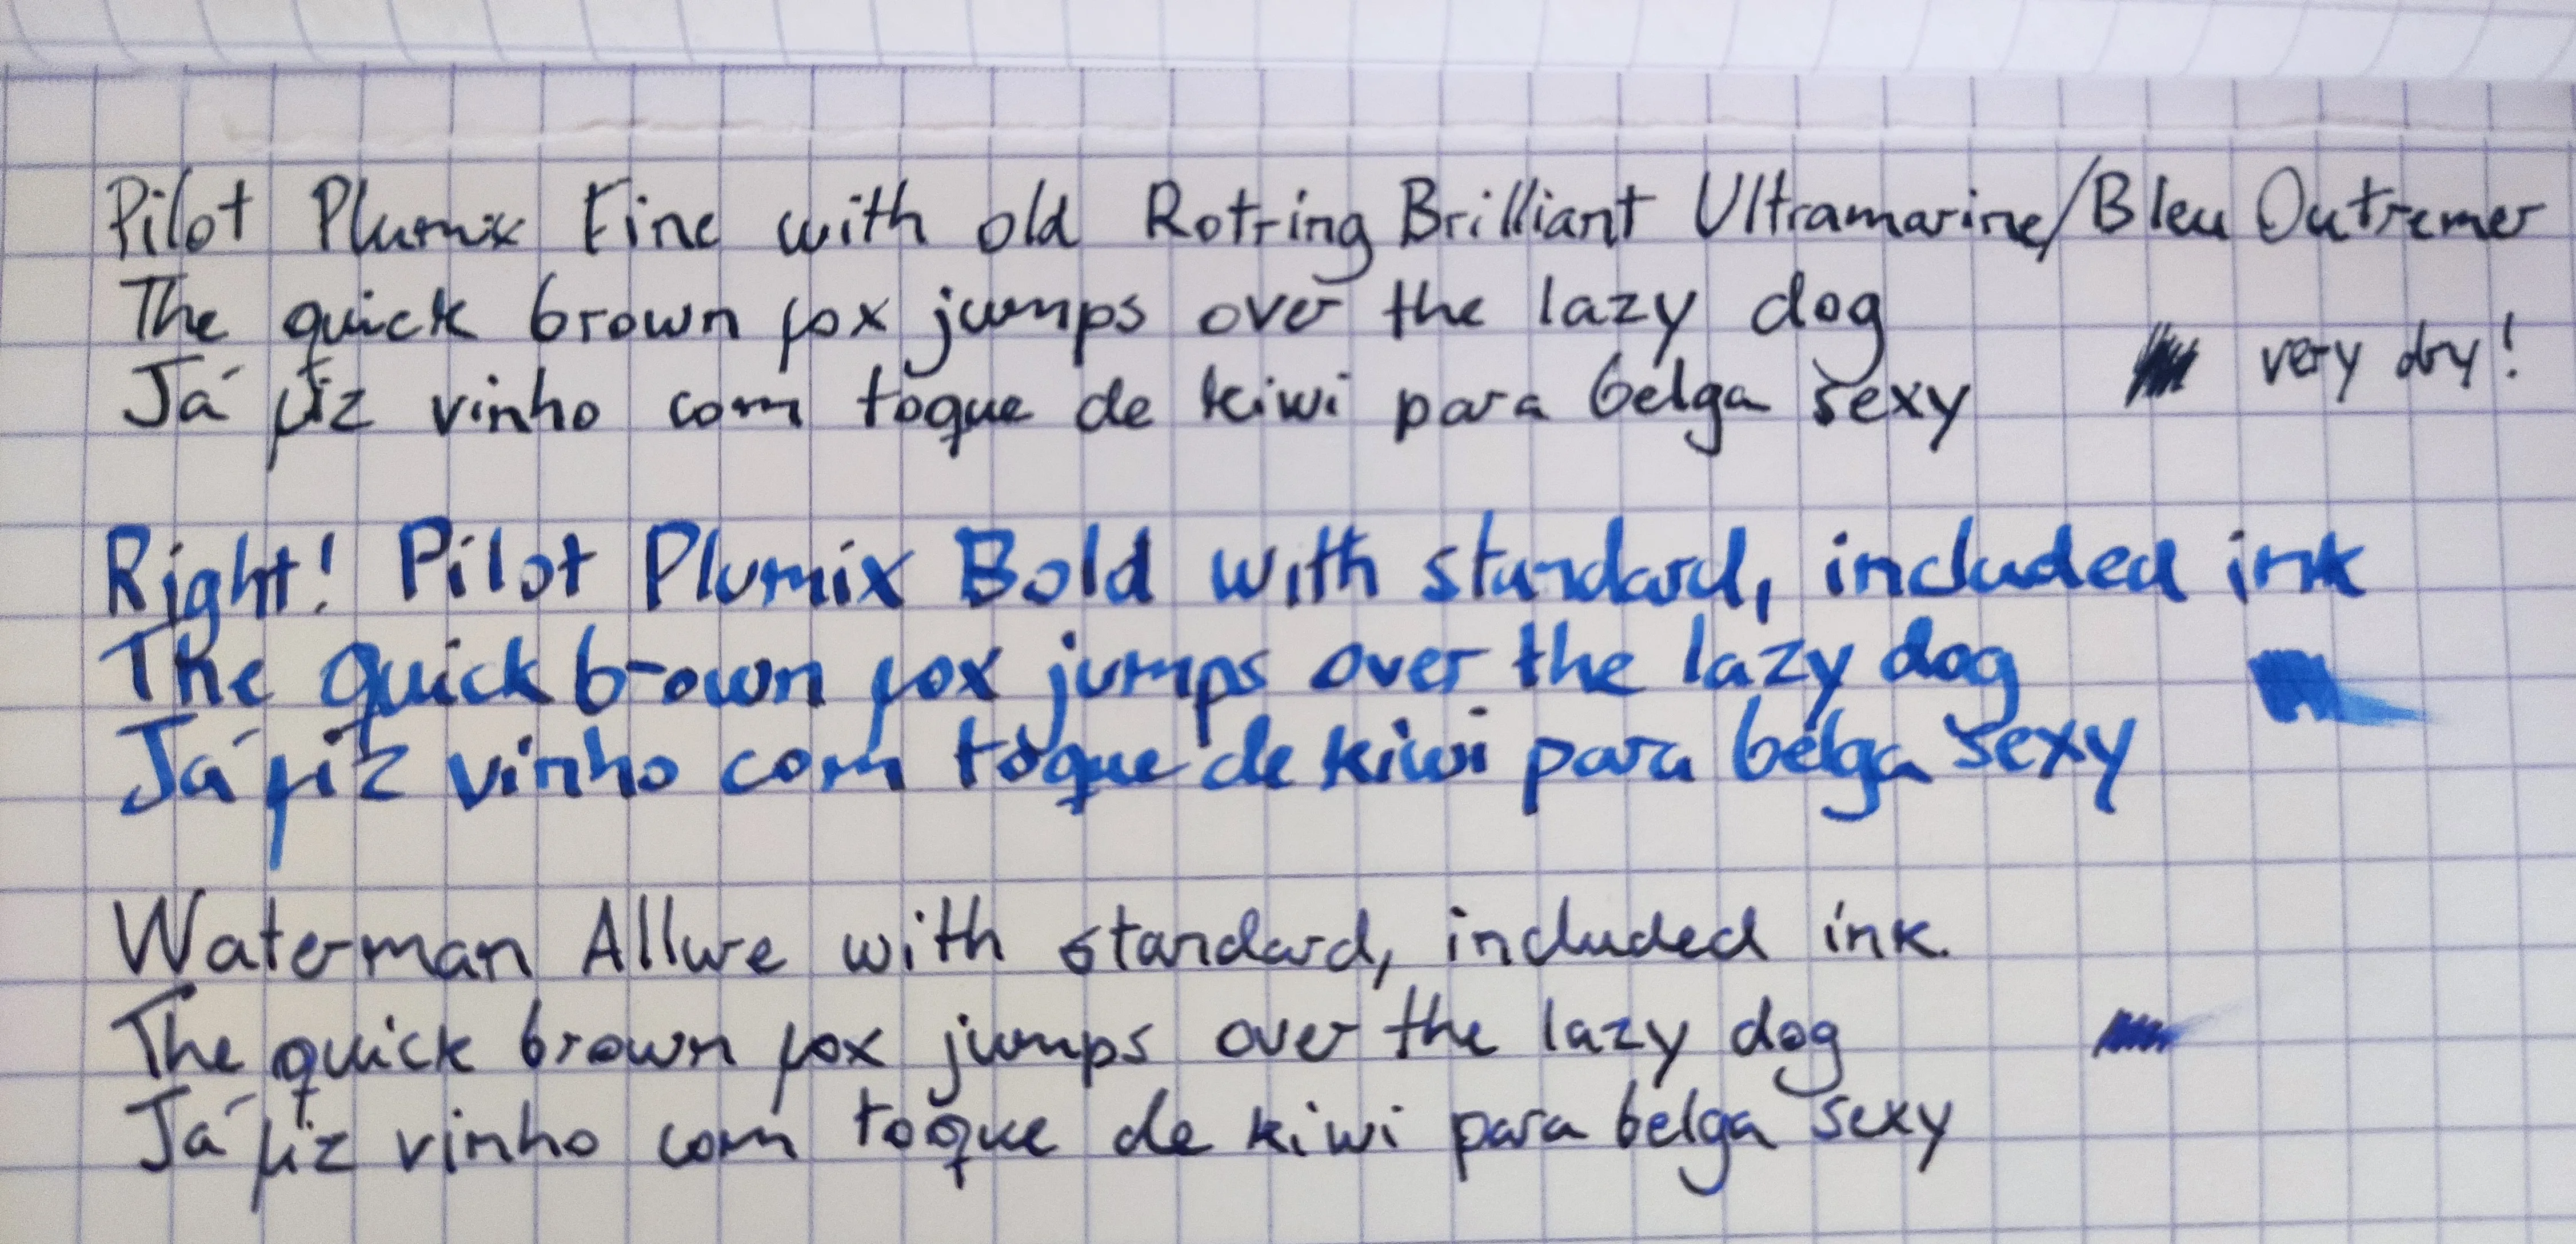 Pilot Plumix Fine with old Rotring Brilliant Ultramarine/Bleu Outremer
The quick brown fox jumps over the lazy dog
very dry!
Já fiz vinho com toque de kiwi para belga sexy
Right! Pilot Plumix Bold with standard, included ink
The quick brown fox jumps over the lazy dog
Já fiz vinho com toque de kiwi para belga sexy
Waterman Allure with standard, included ink.
The quick brown fox jumps over the lazy dog
Já fiz vinho com toque de kiwi para belga sexy